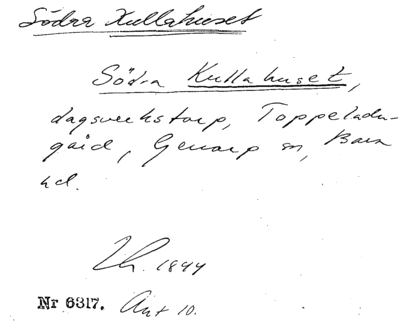 Södra Kullahuset
Södra Kullahuset,
dagsverkstorp, Toppeladu-
gård, Genarp sn, Bara
hd.
1844
Nr 6317. Ant 10.